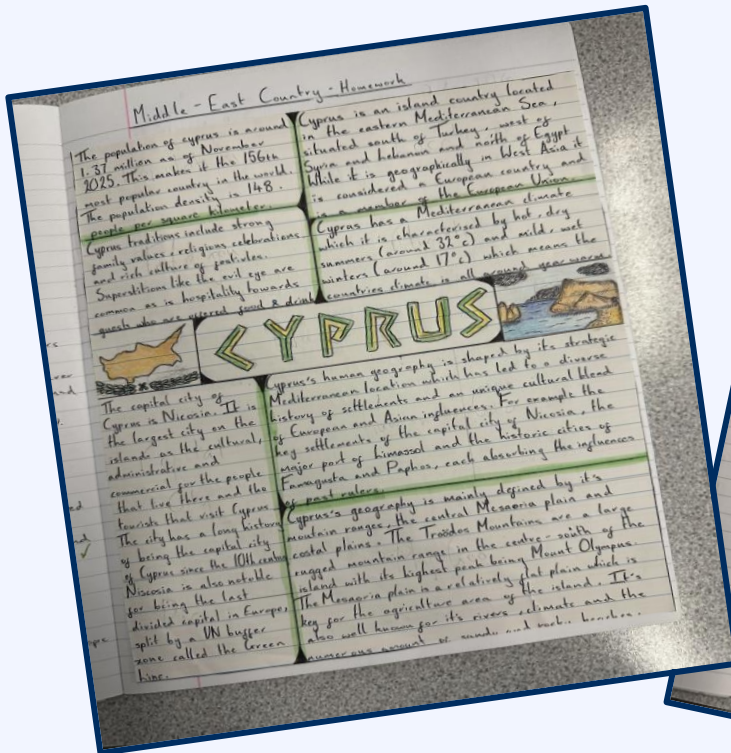 Middle-East Country-Homework
The population of cyprus is around
1.37 million as of November
2025. This makes it the 156th
most popular country in the world.
The population density is 148.
people per square kilometer.
Cyprus traditions include strong
family values, religious celebrations
and rich culture of festivles.
Superstitions like the evil eye are
common as is hospitality towards
guests who are offered food & drink
Cyprus is an island country located
in the eastern Mediterranean Sea,
situated south of Turkey, west of
Syria and Lebanon and north of Egypt
While it is geographically in West Asia it
is considered a European country and
is a member of the European Union.
Cyprus has a Mediterranean climate
which it is characterised by hot, dry
summers (around 32°c) and mild, wet
winters (around 17°c) which means the
countries climate is all around year warm
CYPRUS
The capital city of
Cyprus is Nicosia. It is
the largest city on the
islands as the cultural,
administrative and
commercial for the people
that live there and the
tourists that visit Cyprus
The city has a long history
of being the capital city
of Cyprus since the 10th
Niscosia is also notable
for being the last
divided capital in Europe,
split by a UN buffer
zone called the Green
line.
Cyprus's human geography is shaped by its strategic
Mediterranean location which has led to a diverse
history of settlements and an unique cultural blend
of European and Asian influences. For example the
key settlements of the capital city of Nicosia, the
major port of limassol and the historic cities of
Famagusta and Paphos, each absorbing the influences
of past rulers.
Cyprus's geography is mainly defined by it's
mountain ranges, the central Mesaoria plain and
costal plains. The Troodos Mountains are a large
rugged mountain range in the centre-south of the
island with its highest peak being Mount Olympus.
The Mesaoria plain is a relatively flat plain which is
key for the agriculture area of the island. It's
also well known for it's rivers, climate and the
numerous amount of sandy and rocky beaches.